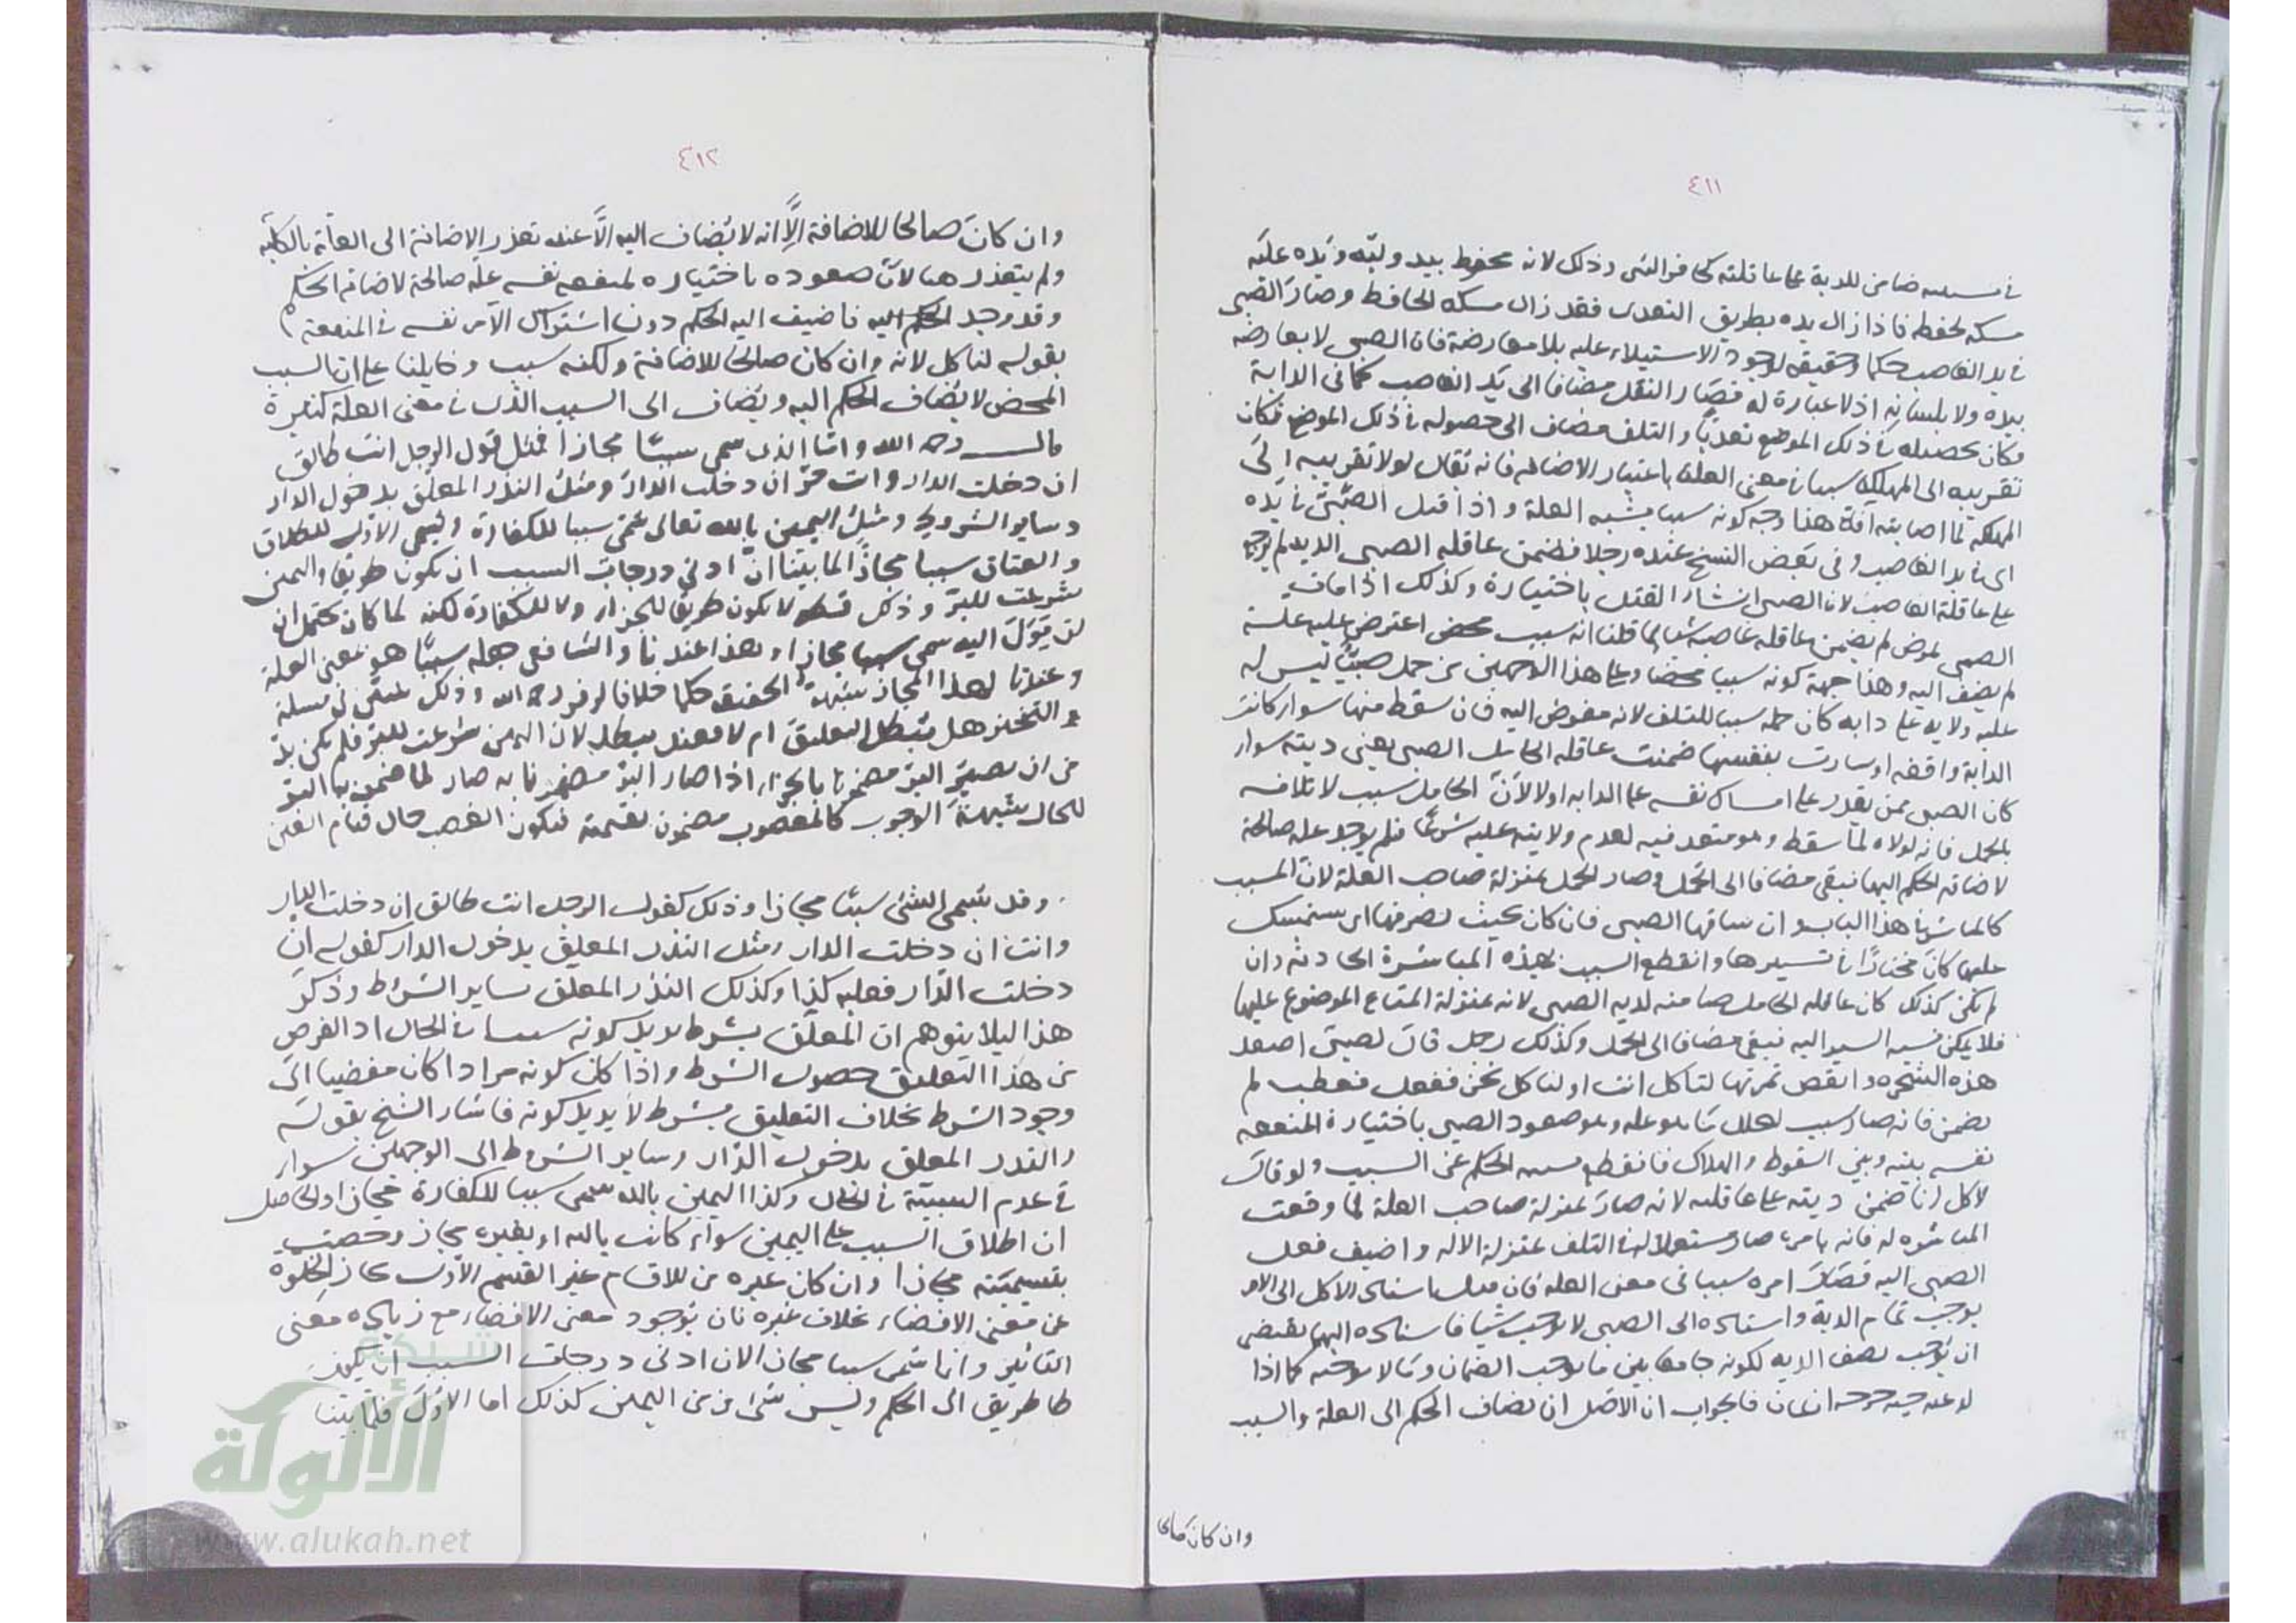 ٤١١
في سببه ضامن للدية على عاقلته كحافر البئر وذلك لانه محفوظ بيد وليه ويده عليه
مسكه لحفظه فاذا زال يده بطريق التعدى فقد زال مسكه الحافظ وصار الصبى
في يد الغاصب حكما وحقيقة لوجود الاستيلاء عليه بلا معارضة فان الصبى لا يعارضه
بيده ولا بلسانه اذ لا عبارة له فصار النقل مضافا الى يد الغاصب كما في الدابة
فكان تحصيله في ذلك الموضع تعديا والتلف مضاف الى حصوله في ذلك الموضع فكان
تقريبه الى المهلكة سببا في معنى العلة باعتبار الاضافة فانه يقال لولا تقريبه الى
المهلكة لما اصابته آفة هذا وجه كونه سببا يشبه العلة واذا قتل الصبى في يده
اى في يد الغاصب وفى بعض النسخ عنده رجلا فضمن عاقلة الصبى الدية لم يرجعوا
على عاقلة الغاصب لان الصبى انشاء القتل باختياره وكذلك اذا مات
الصبى لمرض لم يضمن عاقلة غاصبه شيا لما قلنا انه سبب محض اعترض عليه علة
لم يضف اليه وهذا جهة كونه سببا محضا وعلى هذا الوجهين من حمل صبيا ليس له
عليه ولاية على دابة كان حمله سببا للتلف لانه مفوض اليه فان سقط منها سواء كانت
الدابة واقفة او سارت بنفسها ضمنت عاقلة الحامل الصبى يعنى ديته سواء
كان الصبى ممن يقدر على امساك نفسه على الدابة او لا لان الحامل سبب لاتلافه
بالحمل فانه لولاه لما سقط وهو متعد فيه لعدم ولايته عليه شرعا فلم يوجد علة صالحة
لاضافة الحكم اليها فبقى مضافا الى الحمل وصار الحمل بمنزلة صاحب العلة لان المسبب
كالمباشر في هذا الباب وان ساقها الصبى فان كان بحيث يصرفها اى يستمسك
عليها كان مختارا في تسييرها وانقطع السبب بهذه المباشرة الحادثة وان
لم يكن كذلك كان عاقلة الحامل ضامنة لدية الصبى لانه بمنزلة المتاع الموضوع عليها
فلا يمكن نسبة السير اليه فبقى مضافا الى الحمل وكذلك رجل قال لصبى اصعد
هذه الشجره وانفض ثمرتها لتاكل انت او لناكل نحن ففعل فعطب لم
يضمن فانه صار سبب لهلاك ما هو علة وهو صعود الصبى باختياره لمنفعة
نفسه بينه وبين السقوط والهلاك فانقطع نسبة الحكم عن السبب ولو قال
لاكل انا ضمن ديته على عاقلته لانه صار بمنزلة صاحب العلة لما وقعت
المباشرة له فانه بامره صار مستعملا له في التلف بمنزلة الاله واضيف فعل
الصبى اليه فصار امره سببا في معنى العلة فان قيل اسناد الاكل الى الامر
يوجب تمام الدية واسناده الى الصبى لا يوجب شيا فاسناده اليهما يقتضى
ان يوجب نصف الدية لكونه جامعا بين ما يوجب الضمان وما لا يوجبه كما اذا
فالجواب ان الاصل ان يضاف الحكم الى العلة والسبب
وان كان صالحا
٤١٢
وان كان صالحا للاضافة الا انه لا يضاف اليه الا عند تعذر الاضافة الى العلة بالكلية
ولم يتعذر هنا لان صعوده باختياره لمنفعة نفسه علة صالحة لاضافة الحكم
وقد وجد الحكم اليه فاضيف اليه الحكم دون اشتراك الآمر نفسه في المنفعة
بقوله لناكل لانه وان كان صالحا للاضافة ولكنه سبب على ان السبب
المحض لا يضاف الحكم اليه ويضاف الى السبب الذى في معنى العلة كثيرة
قال رحمه الله واما الذى سمى سببا مجازا فمثل قول الرجل انت طالق
ان دخلت الدار وانت حر ان دخلت الدار ومثل النذر المعلق بدخول الدار
وساير الشروط ومثل اليمين بالله تعالى سمى سببا للكفارة ويسمى الاول للطلاق
والعتاق سببا مجازا لما بينا ان ادنى درجات السبب ان يكون طريقا واليمين
شرعت للبر وذلك قط لا يكون طريقا للجزاء ولا للكفارة لكنه لما كان يحتمل ان
يؤل اليه سمى سببا مجازا وهذا عندنا والشافعى جعله سببا هو بمعنى العلة
وعندنا لهذا المجاز شبهة الحقيقة حكما خلافا لزفر رحمه الله وذلك يتبين في مسلة
التخيز هل يبطل التعليق ام لا فعندنا يبطله لان اليمين شرعت للبر فلم يكن بد
من ان يصير البر مضمونا بالجزاء اذا صار البر مضمونا به صار لما ضمن به البر
للحال شبهة الوجوب كالمغصوب مضمون بقيمته فيكون الغصب حال قيام العين
وقد يسمى الشئ سببا مجازا وذلك كقول الرجل انت طالق ان دخلت الدار
وانت ان دخلت الدار ومثل النذر المعلق بدخول الدار كقوله ان
دخلت الدار فعليه كذا وكذلك النذر المعلق بساير الشروط وذكر
هذا ليلا يتوهم ان المعلق بشرط يريد كونه سببا في الحال اذ الغرض
من هذا التعليق حصول الشرط واذا كان كونه مرادا كان مفضيا الى
وجود الشرط بخلاف التعليق بشرط لا يريد كونه فاشار الشيخ بقوله
والنذر المعلق بدخول الدار وساير الشروط الى الوجهين سواء
في عدم السببية في الحال وكذا اليمين بالله سمى سببا للكفارة مجازا والحاصل
ان اطلاق السبب على اليمين سواء كانت بالله او بغيره مجاز وخصت
بتسميته مجازا وان كان غيره من الاقسام غير القسم الاول مجاز لخلوه
عن معنى الافضاء بخلاف غيره فان بوجود معنى الافضاء مع زيادة معنى
التاثير وانما سمى سببا مجازا لان ادنى درجات السبب ان يكون
طا طريق الى الحكم وليس شئ من اليمين كذلك اما الاول فلما بينا
شبكة
الألوكة
www.alukah.net